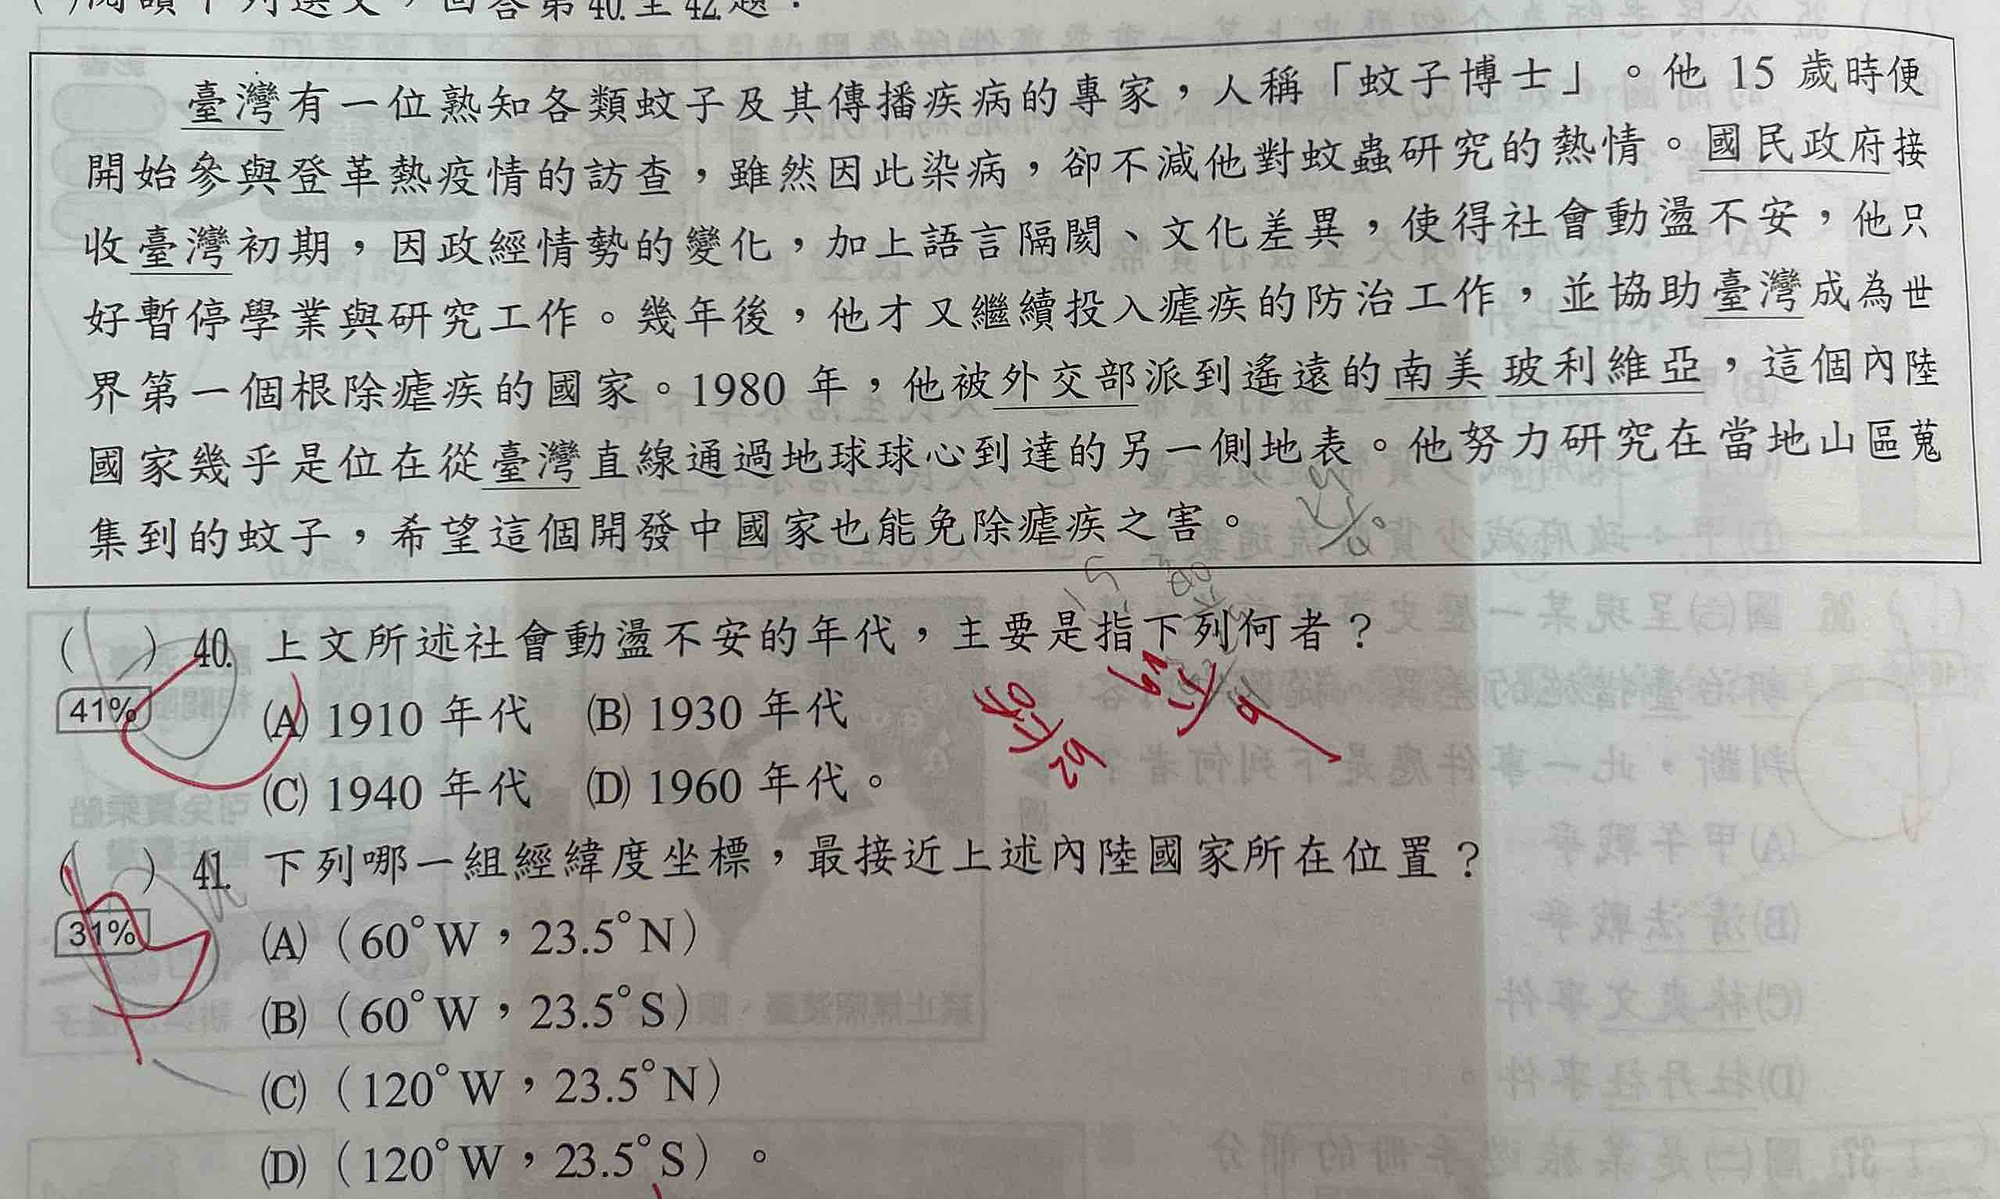 ( )閱讀下列選文，回答第40.至42.題：
臺灣有一位熟知各類蚊子及其傳播疾病的專家，人稱「蚊子博士」。他 15 歲時便
開始參與登革熱疫情的訪查，雖然因此染病，卻不減他對蚊蟲研究的熱情。國民政府接
收臺灣初期，因政經情勢的變化，加上語言隔閡、文化差異，使得社會動盪不安，他只
好暫停學業與研究工作。幾年後，他才又繼續投入瘧疾的防治工作，並協助臺灣成為世
界第一個根除瘧疾的國家。1980 年，他被外交部派到遙遠的南美玻利維亞，這個內陸
國家幾乎是位在從臺灣直線通過地球球心到達的另一側地表。他努力研究在當地山區蒐
集到的蚊子，希望這個開發中國家也能免除瘧疾之害。
( ) 40. 上文所述社會動盪不安的年代，主要是指下列何者？
41%
(A) 1910 年代 (B) 1930 年代
(C) 1940 年代 (D) 1960 年代。
( ) 41. 下列哪一組經緯度坐標，最接近上述內陸國家所在位置？
31%
(A)（60°W，23.5°N）
(B)（60°W，23.5°S）
(C)（120°W，23.5°N）
(D)（120°W，23.5°S）。